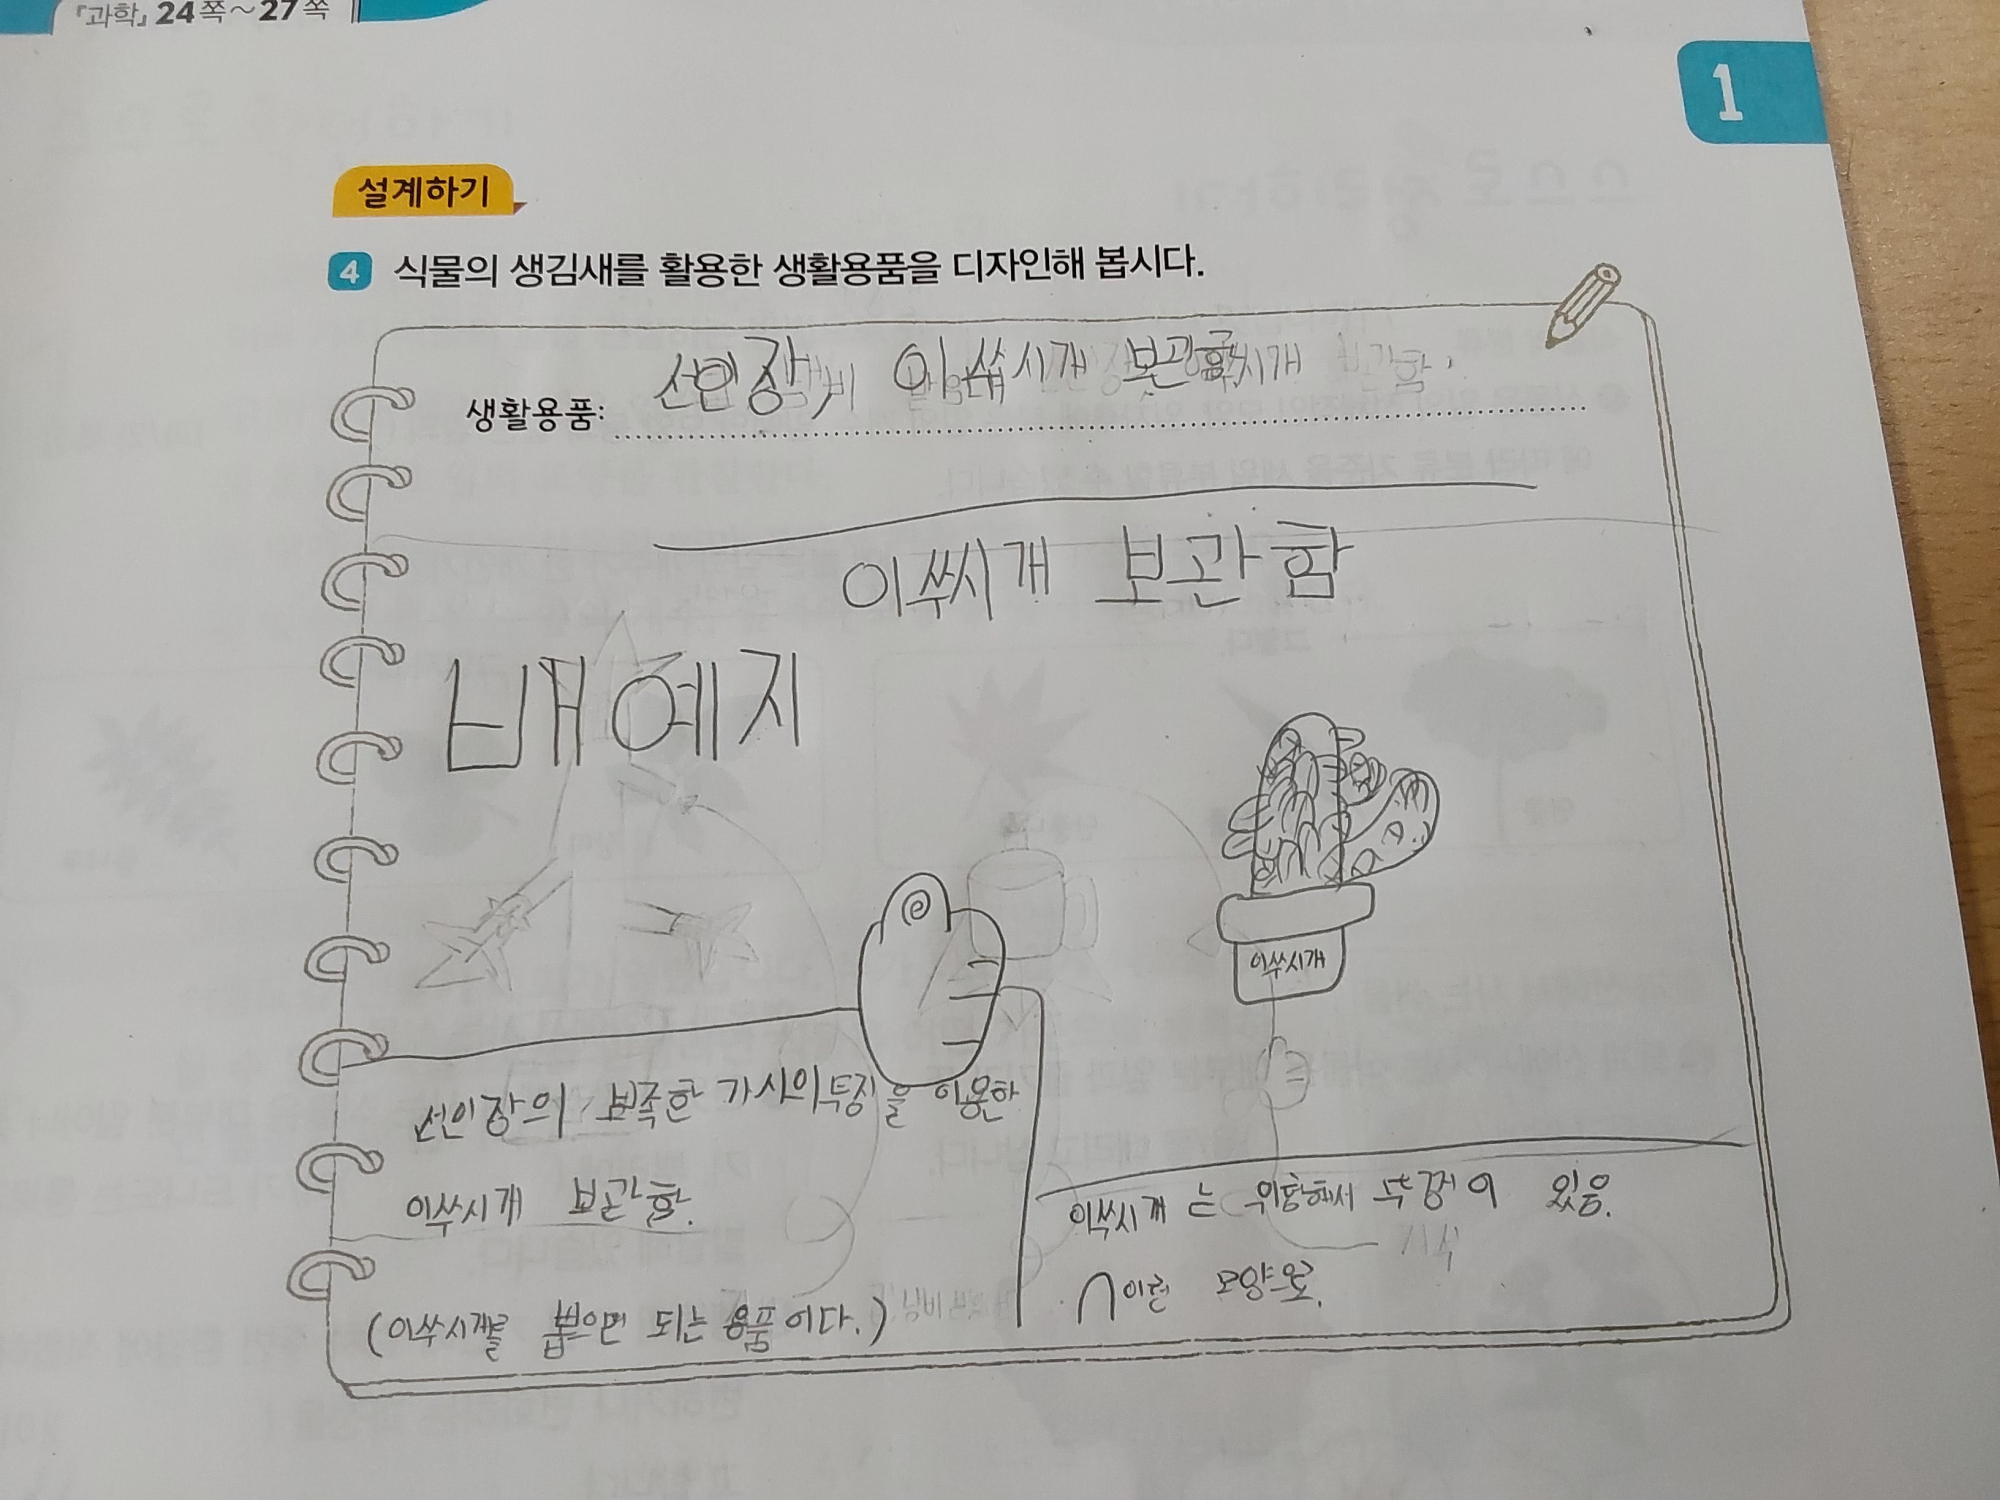 『과학』 24쪽~27쪽
1
설계하기
4 식물의 생김새를 활용한 생활용품을 디자인해 봅시다.
생활용품: 선인장 이쑵시개 보관함
이쑤시개 보관함
배예지
이쑤시개
선인장의 뾰족한 가시의 특징을 이용한
이쑤시개 보관함.
(이쑤시개를 뽑으면 되는 용품이다.)
이쑤시개는 위험해서 뚜껑이 있음.
이런 모양으로.